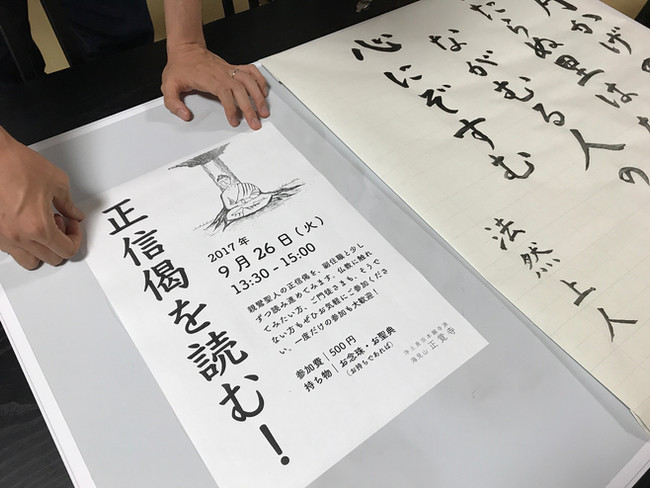 正信偈を読む！
2017年
9月26日(火)
13:30 - 15:00
親鸞聖人の正信偈を、副住職と少し
ずつ読み進めてみます。仏教に触れ
てみたい方、ご門徒さまも、そうで
ない方もぜひお気軽にご参加くださ
い。一度だけの参加も大歓迎！
参加費｜500円
持ち物｜お念珠・お聖典
(お持ちであれば)
浄土真宗本願寺派
正覚寺
月かげの
たらぬ里は
ながむる人の
心にぞすむ
法然上人